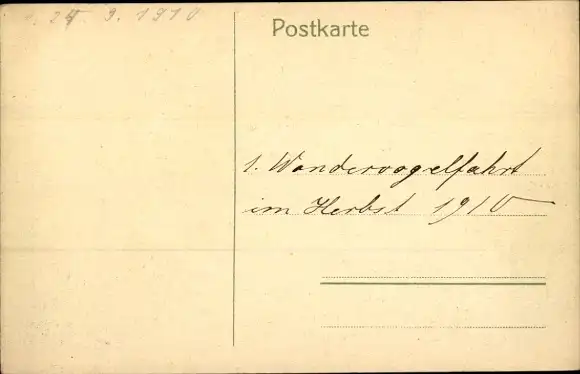 9. 1910
Postkarte
1. Wandervogelfahrt
im Herbst 1910